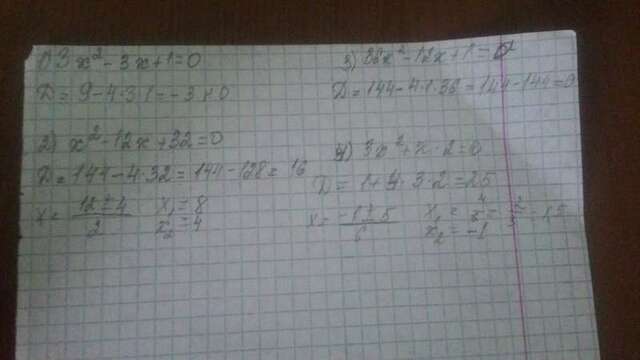 1) 3x² - 3x + 1 = 0
D = 9 - 4·3·1 = -3 < 0
2) x² - 12x + 32 = 0
D = 144 - 4·32 = 144 - 128 = 16
x = 12±4/2 x₁ = 8
x₂ = 4
3) 36x² - 12x + 1 = 0
D = 144 - 4·1·36 = 144 - 144 = 0
4) 3x² - x - 2 = 0
D = 1 + 4·3·2 = 25